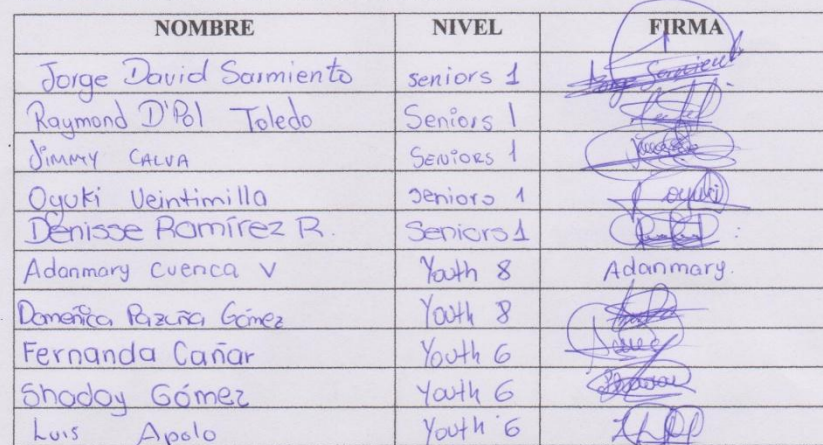 NOMBRE NIVEL FIRMA
Jorge David Sarmiento seniors 1 Jorge Sarmiento
Raymond D'Pol Toledo Seniors 1
Jimmy CALVA SENIORS 1
Oyuki Veintimilla seniors 1 oyuki
Denisse Ramírez R. Seniors 1
Adanmary Cuenca V Youth 8 Adanmary.
Domenica Gómez Youth 8
Fernanda Cañar Youth 6
Shaday Gómez Youth 6
Luis Apolo Youth 6